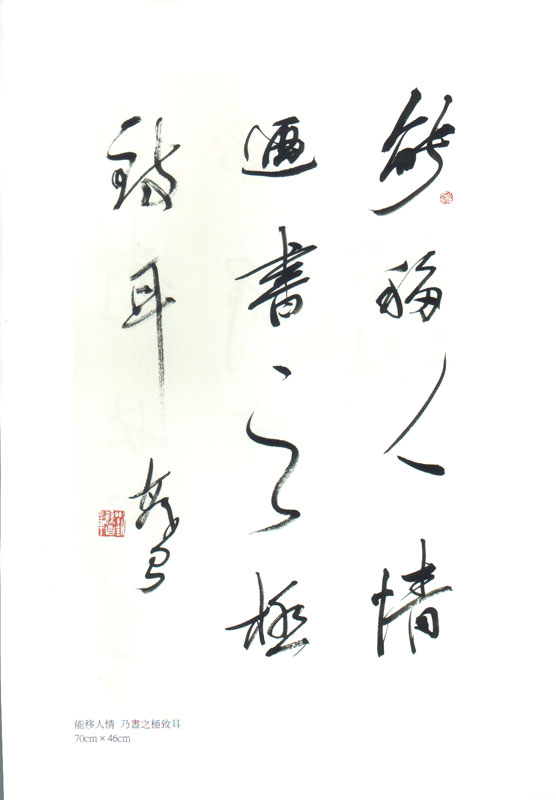 能移人情
迺書之極
致耳
能移人情 乃書之極致耳
70cm × 46cm